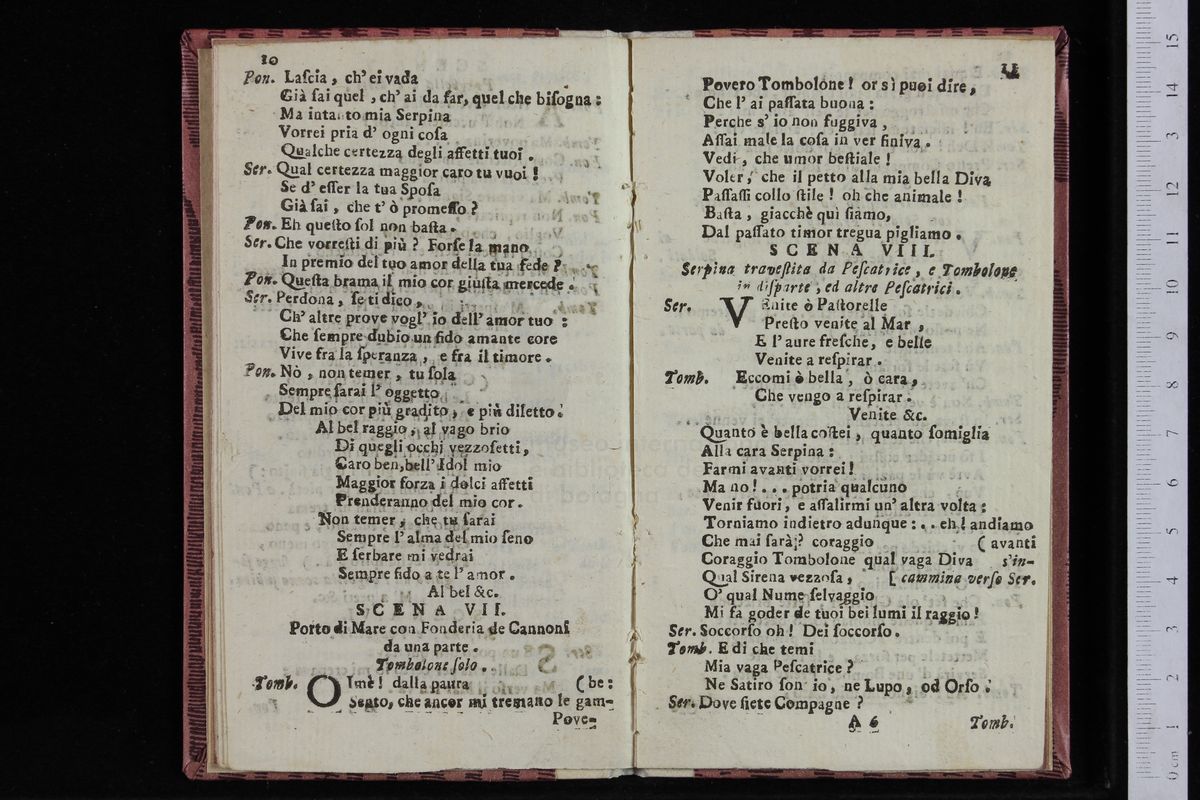 10
Pon. Laſcia, ch' ei vada
Già ſai quel, ch' ai da far, quel che biſogna:
Ma intanto mia Serpina
Vorrei pria d' ogni coſa
Qualche certezza degli affetti tuoi.
Ser. Qual certezza maggior caro tu vuoi!
Se d' eſſer la tua Spoſa
Già ſai, che t' ò promeſſo?
Pon. Eh queſto ſol non baſta.
Ser. Che vorreſti di più? Forſe la mano
In premio del tuo amor della tua fede?
Pon. Queſta brama il mio cor giuſta mercede.
Ser. Perdona, ſe ti dico,
Ch' altre prove vogl' io dell' amor tuo:
Che ſempre dubio un fido amante core
Vive fra la ſperanza, e fra il timore.
Pon. Nò, non temer, tu ſola
Sempre ſarai l' oggetto
Del mio cor più gradito, e più diletto.
Al bel raggio, al vago brio
Di quegli occhi vezzoſetti,
Caro ben, bell' Idol mio
Maggior forza i dolci affetti
Prenderanno del mio cor.
Non temer, che tu ſarai
Sempre l' alma del mio ſeno
E ſerbare mi vedrai
Sempre fido a te l' amor.
Al bel &c.
SCENA VII.
Porto di Mare con Fonderia de Cannoni
da una parte.
Tombolone ſolo.
Tomb. OImè! dalla paura (be:
Sento, che ancor mi tremano le gam-
Pove-
11
Povero Tombolone! or sì puoi dire,
Che l' ai paſſata buona:
Perche s' io non fuggiva,
Aſſai male la coſa in ver finiva.
Vedi, che umor beſtiale!
Voler, che il petto alla mia bella Diva
Paſſaſſi collo ſtile! oh che animale!
Baſta, giacchè quì ſiamo,
Dal paſſato timor tregua pigliamo.
SCENA VIII.
Serpina traveſtita da Peſcatrice, e Tombolone
in diſparte, ed altre Peſcatrici.
Ser. VEnite ò Paſtorelle
Preſto venite al Mar,
E l' aure freſche, e belle
Venite a reſpirar.
Tomb. Eccomi ò bella, ò cara,
Che vengo a reſpirar.
Venite &c.
Quanto è bella coſtei, quanto ſomiglia
Alla cara Serpina:
Farmi avanti vorrei!
Ma no!... potria qualcuno
Venir fuori, e aſſalirmi un' altra volta:
Torniamo indietro adunque:.. eh! andiamo
Che mai ſarà? coraggio (avanti
Coraggio Tombolone qual vaga Diva s'in-
Qual Sirena vezzoſa, [cammina verſo Ser.
O' qual Nume ſelvaggio
Mi fa goder de tuoi bei lumi il raggio!
Ser. Soccorſo oh! Dei ſoccorſo.
Tomb. E di che temi
Mia vaga Peſcatrice?
Ne Satiro ſon io, ne Lupo, od Orſo.
Ser. Dove ſiete Compagne?
A 6 Tomb.